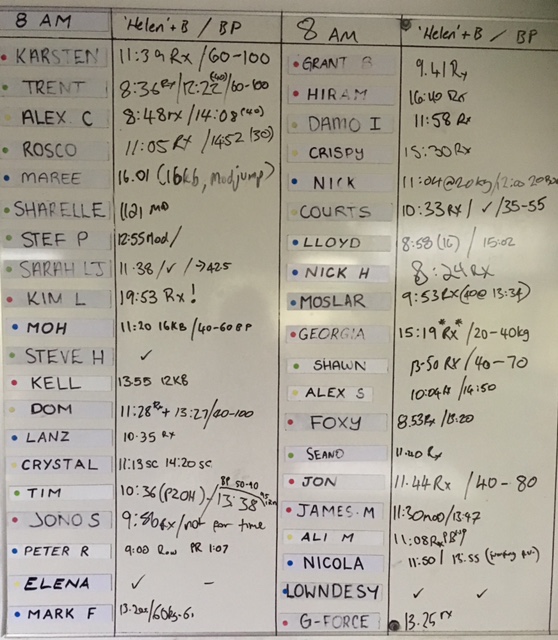 8 AM 'Helen' + B / BP
KARSTEN 11:39 Rx / 60-100
TRENT 8:36 Rx / 12:22 (60) / 60-100
ALEX C 8:48 rx / 14:08 (40)
ROSCO 11:05 Rx / 1452 (30)
MAREE 16.01 (16kb, modjump)
SHARELLE 1121 MD
STEF P 12:55 Mod /
SARAH LJ 11.38 / ✓ / → 42.5
KIM L 19:53 Rx!
MOH 11:20 16KB / 40-60 BP
STEVE H ✓
KELL 13.55 12KB
DOM 11:28 Rx + 13:27 / 20-100
LANZ 10.35 Rx
CRYSTAL 11:13 sc 14:20 sc
TIM 10:36 (P2OH) - BP 50-90 / 13:38
JONO S 9:56 Rx / not for time
PETER R 9:00 Row PR 1:07
ELENA ✓ -
MARK F 13.20x / 60kg
8 AM 'Helen' + B / BP
GRANT B 9.41 Rx
HIRAM 16:40 Rx
DAMO I 11:58 Rx
CRISPY 15:30 Rx
NICK 11:04 @ 20kg / 12:00
COURTS 10:33 Rx / ✓ / 35-55
LLOYD 8:58 (16) / 15:02
NICK H 8:24 Rx
MOSLAR 9:53 Rx (40 @ 13:34)
GEORGIA 15:19 *Rx* / 20-40kg
SHAWN 13.50 RX / 40-70
ALEX S 10:04 / 14:50
FOXY 8.53 Rx / 13:20
SEANO 11.40 Rx
JON 11.44 Rx / 40-80
JAMES.M 11:30 mod / 13:47
ALI M 11:08 Rx
NICOLA 11:50 / 13:55
LOWNDESY ✓ ✓
G-FORCE 13.25 rx